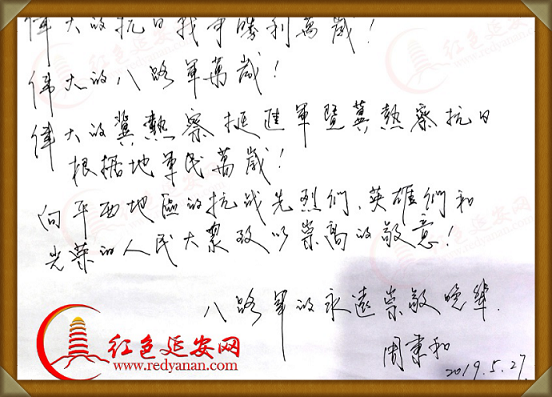 伟大的抗日战争勝利萬歲！
偉大的八路軍萬歲！
偉大的冀熱察挺進軍暨冀熱察抗日
根据地軍民萬歲！
向平西地區的抗战先烈們、英雄們和
光荣的人民大衆致以崇高的敬意！
八路軍的永遠崇敬晚輩
周秉和
2019.5.27.
红色延安网
www.redyanan.com